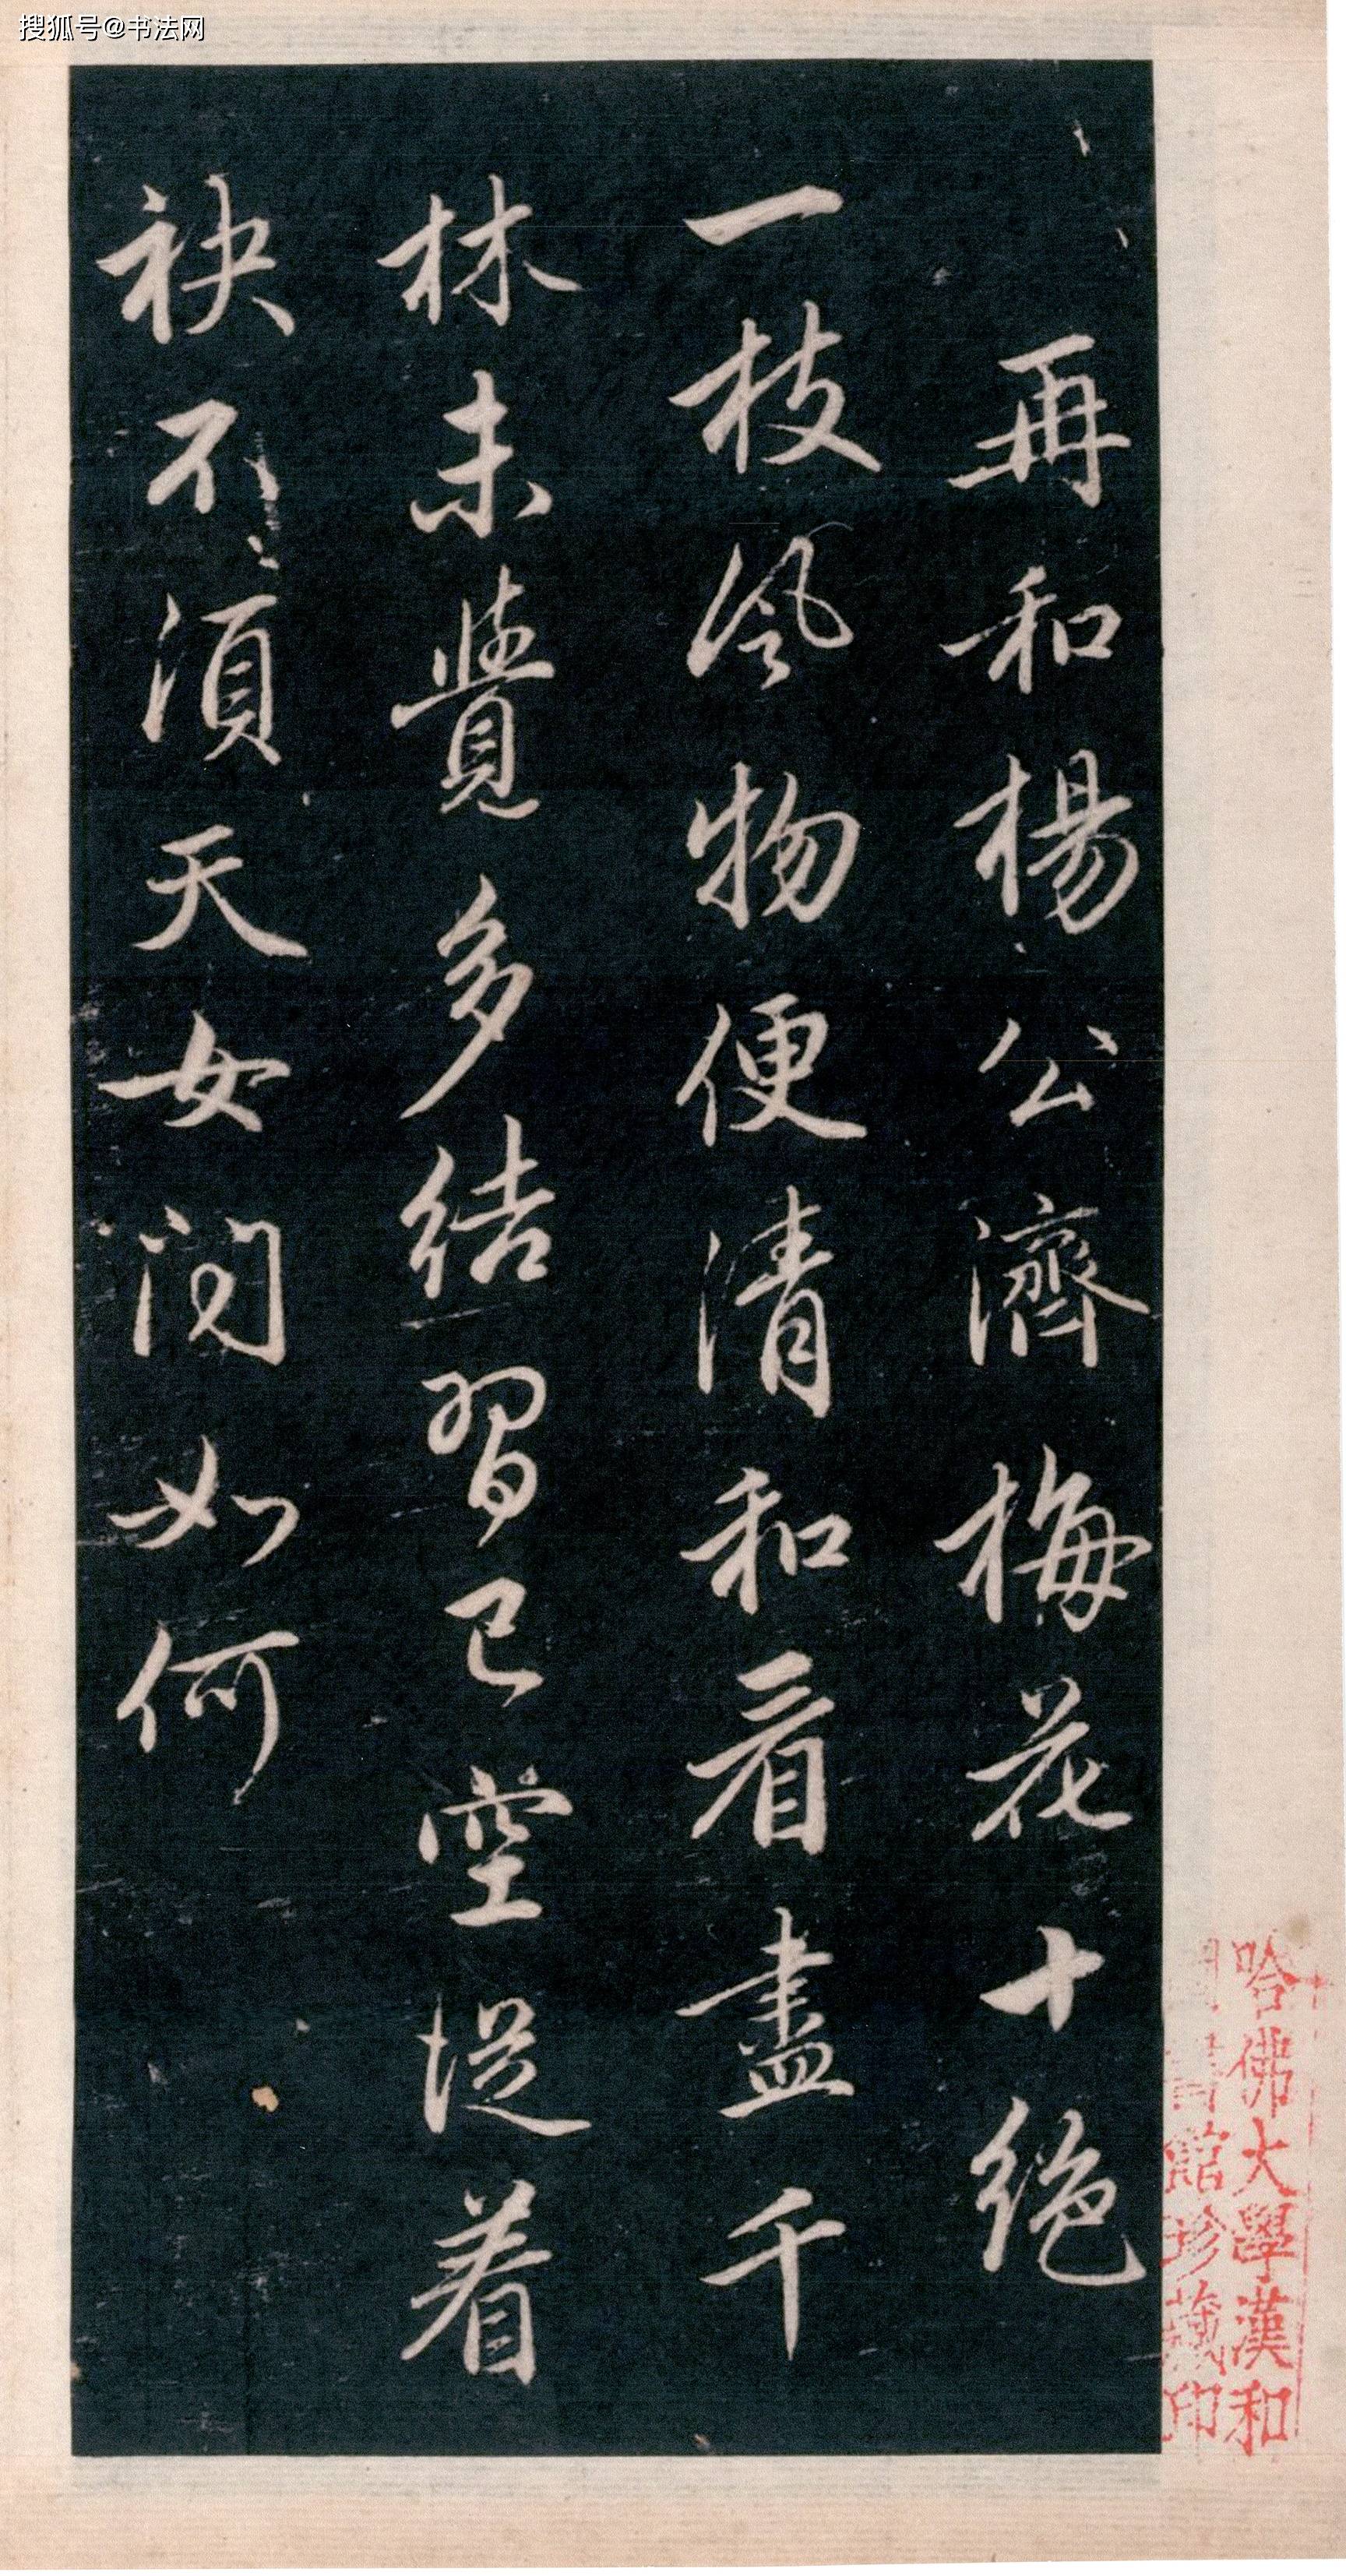 搜狐号@书法网
再和楊公濟梅花十絕
一枝風物便清和看盡千
林未覺多結習已空從着
袂不須天女問如何
哈佛大學漢和
圖書館珍藏印